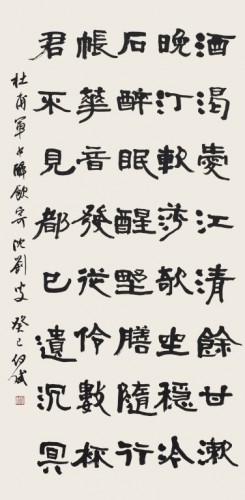 酒渴愛江清餘甘漱
晚汀軟莎欹坐穩冷
石醉眠醒野膳隨行
帳華音發從伶數杯
君不見都已遺沉冥
杜甫軍中醉飲寄沈劉叟 癸巳